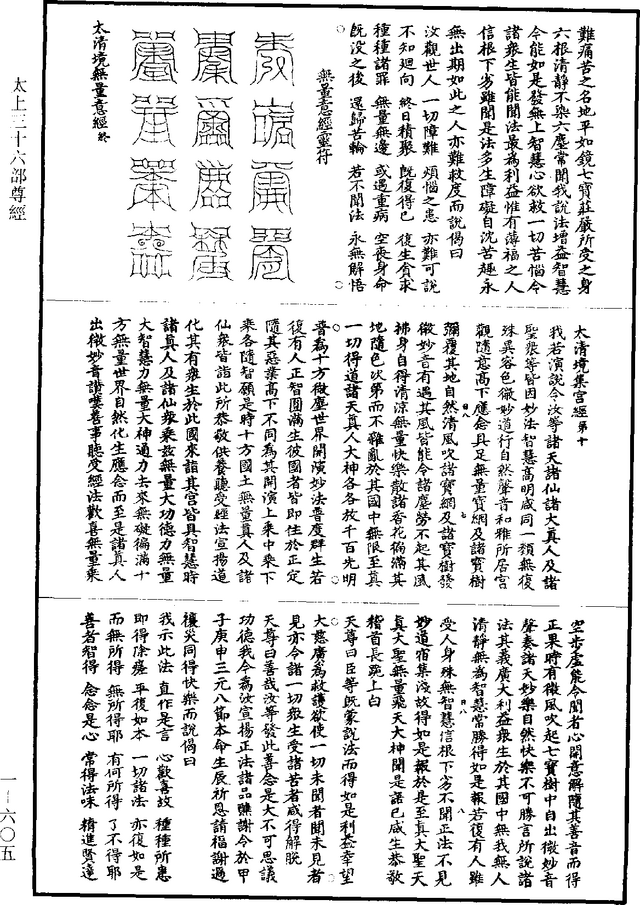 難痛苦之名地平如鏡七寶莊嚴所受之身
六根清靜不染六塵常聞我說法增益智慧
令能如是發無上智慧心欲救一切苦惱令
諸衆生皆能聞法最為利益惟有薄福之人
信根下劣雖聞是法多生障礙自沈苦趣永
無出期如此之人亦難救度而說偈曰
汝觀世人 一切障難 煩惱之患 亦難可說
不知迴向 終日積聚 既復得已 復生貪求
種種諸罪 無量無邊 或遇重病 空喪身命
既沒之後 還歸苦輪 若不聞法 永無解悟
無量意經靈符
太清境無量意經終
太上三十六部尊經
太清境集宮經第十
我若演說令汝等諸天諸仙諸大真人及諸
聖衆等皆因妙法智慧高明咸同一類無復
殊異容色微妙道行自然聲音和雅所居宮
觀隨意高下應念具足無量寶網及諸寶樹
彌覆其地自然清風吹諸寶網及諸寶樹發
微妙音有遇其風皆能令諸塵勞不起其風
拂身自得清涼無量快樂散諸香花徧滿其
地隨色次第而不雜亂於其國中無限至真
一切得道諸天真人大神各各放千百光明
普為十方微塵世界開演妙法普度群生若
復有人正智圓滿生彼國者皆即住於正定
隨其惡業高下不同為其開演上乘中乘下
乘各隨智願是時十方國土無量真人及諸
仙衆皆詣此所恭敬供養聽受經法宣揚道
化其有衆生於此國來詣其宮皆具智慧時
諸真人及諸仙衆乘兹無量大功德力無量
大智慧力無量大神通力去來無礙徧滿十
方無量世界自然化生應念而至是諸真人
出微妙音讚嘆善事聽受經法歡喜無量乘
空步虛能令聞者心開意解隨其善音而得
正果時有微風吹起七寶樹中自出微妙音
聲奏諸天妙樂自然快樂不可勝言所說諸
法其義廣大利益衆生於其國中無我無人
清靜無為智慧常勝得如是報若復有人雖
受人身殊無智慧信根下劣不聞正法不見
妙道宿集淺故得如是報於是至真大聖天
真大聖無量飛天大神聞是語已咸生恭敬
稽首長跪上白
天尊曰臣等既蒙說法而得如是利益幸望
大慈廣為救護欲使一切未聞者聞未見者
見亦令諸一切衆生受諸苦者咸得解脫
天尊曰善哉汝等發此善念是大不可思議
功德我今為汝宣揚正法諸品醮謝令於甲
子庚申三元八節本命生辰祈恩請福謝過
禳災同得快樂而說偈曰
我示此法 直作是言 心歡喜故 種種所患
即得除瘥 平復如本 一切諸法 亦復如是
而無所得 無所得耶 有何所得 了不得耶
善者智得 念念是心 常得法味 精進賢達
一—六〇五